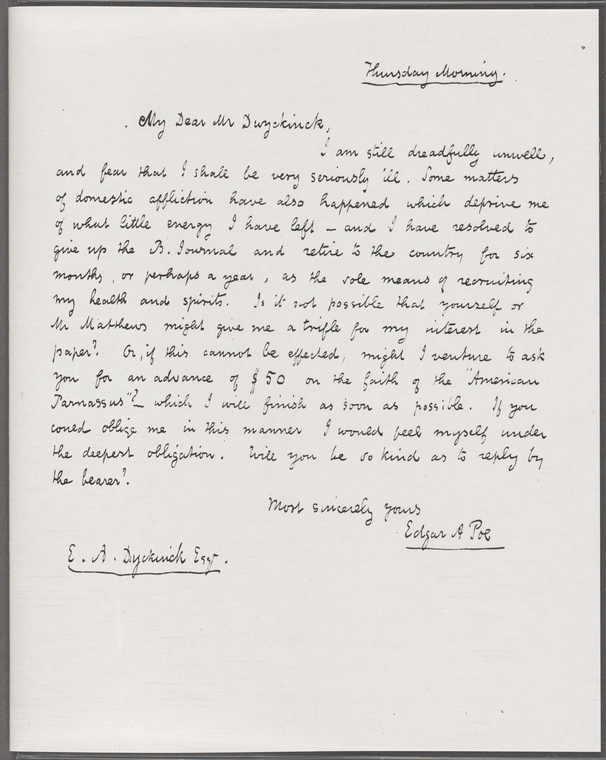 Thursday Morning.
My Dear Mr Duyckinck,
I am still dreadfully unwell,
and fear that I shall be very seriously ill. Some matters
of domestic affliction have also happened which deprive me
of what little energy I have left — and I have resolved to
give up the B. Journal and retire to the country for six
months, or perhaps a year, as the sole means of recruiting
my health and spirits. Is it not possible that yourself or
Mr Matthews might give me a trifle for my interest in the
paper? Or, if this cannot be effected, might I venture to ask
you for an advance of $50 on the faith of the "American
Parnassus"? — which I will finish as soon as possible. If you
could oblige me in this manner I would feel myself under
the deepest obligation. Will you be so kind as to reply by
the bearer?
Most sincerely yours
Edgar A Poe
E. A. Dyckinck Esqr.